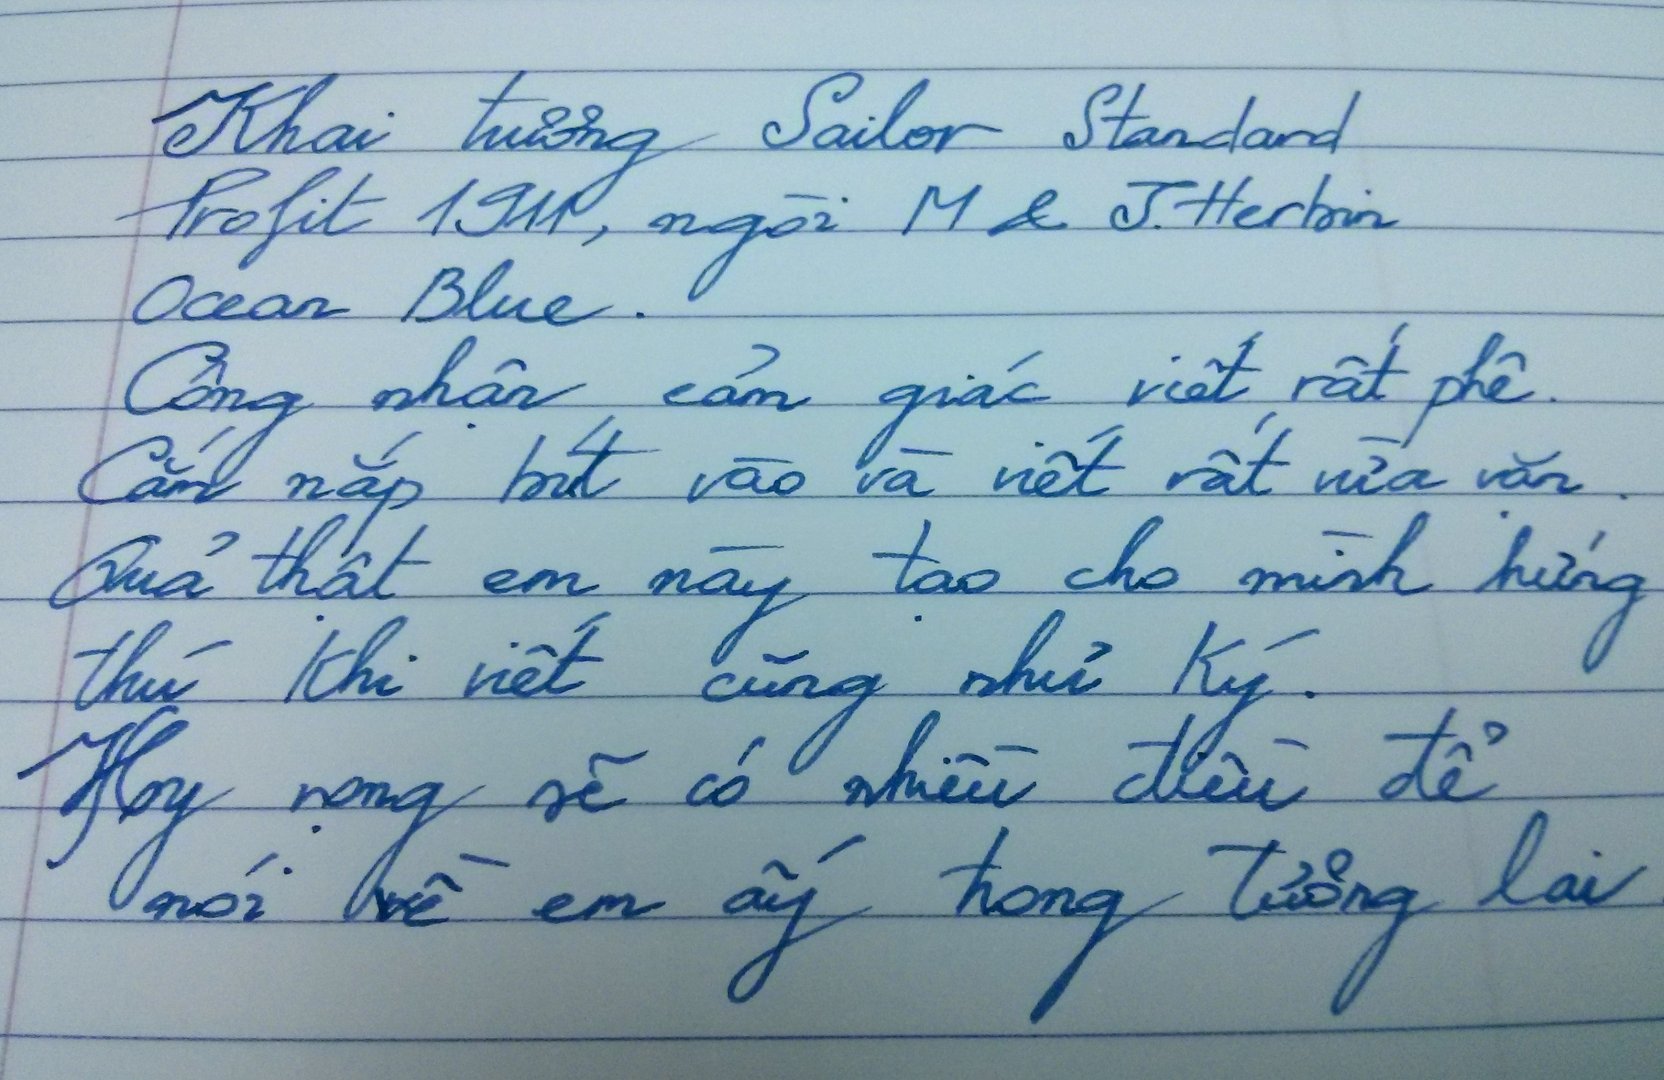 Khai trương Sailor Standard
Profit 1911, ngòi M & J.Herbin
Ocean Blue.
Công nhận cảm giác viết rất phê.
Cắm nắp bút vào và viết rất vừa vặn.
Quả thật em này tạo cho mình hứng
thú khi viết cũng như ký.
Hy vọng sẽ có nhiều điều để
nói về em ấy trong tương lai.